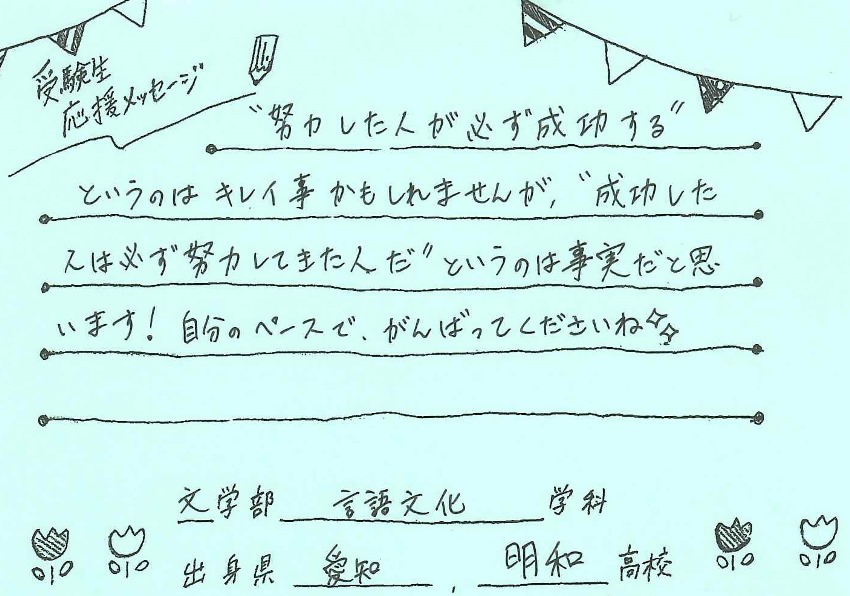 受験生
応援メッセージ
"努力した人が必ず成功する"
というのは キレイ事 かもしれませんが、"成功した
人は必ず努力してきた人だ"というのは事実だと思
います! 自分のペースで、がんばってくださいね
文学部 言語文化 学科
出身県 愛知 , 明和 高校